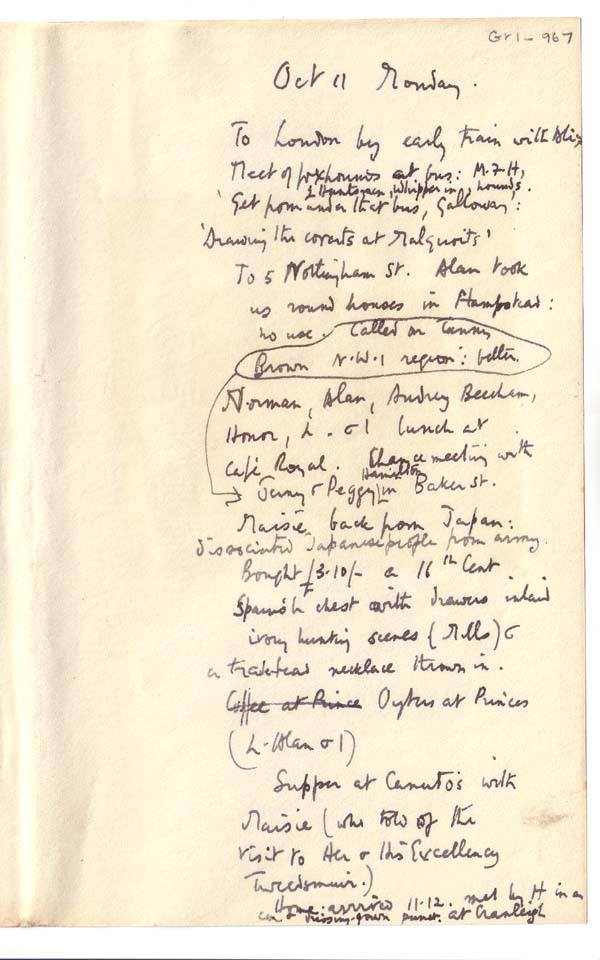 Gr1 - 967
Oct 11 Monday.
To London by early train with
Meet of foxhounds at bus: M.F.H,
2 Huntsmen, Whipper in, hounds.
'Get from under that bus, Galloway':
'Drawing the coverts at Malquoits'
To 5 Nottingham St. Alan took
us round houses in Hampstead:
no use. Called on Tanny
Brown N.W.1 region: better.
Norman, Alan, Audrey Beecham,
Honor, L. & I lunch at
Café Royal. Chance meeting with
Jenny & Peggy Hamilton in Baker St.
Maisie back from Japan:
dissociated Japanese people from army.
Bought £3.10/- a 16th Cent
Spanish chest with drawers inlaid
ivory hunting scenes (Mills) &
a trade-bead necklace thrown in.
Coffee at Prince Oysters at Princes
(L. Alan & I)
Supper at Canuto's with
Maisie (who told of the
visit to Her & His Excellency
Tweedsmuir.)
Home: arrived 11.12. met by H in a
car & dressing-gown at Cranleigh